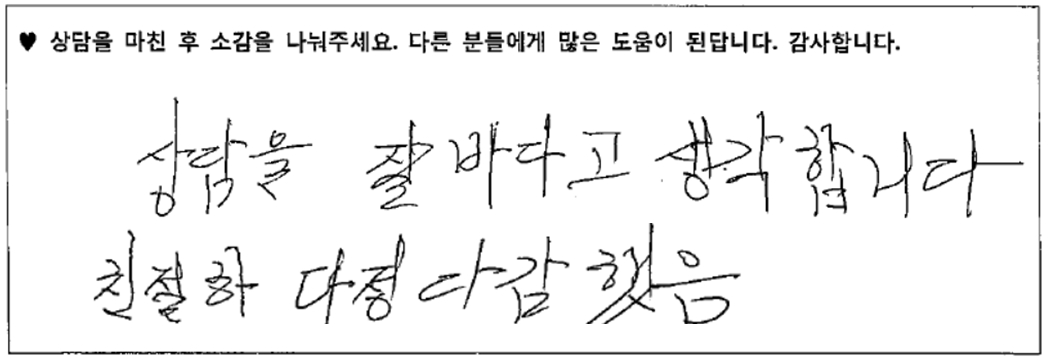 ♥ 상담을 마친 후 소감을 나눠주세요. 다른 분들에게 많은 도움이 된답니다. 감사합니다.
상담을 잘 바다고 생각합니다
친절하 다정다감 했음